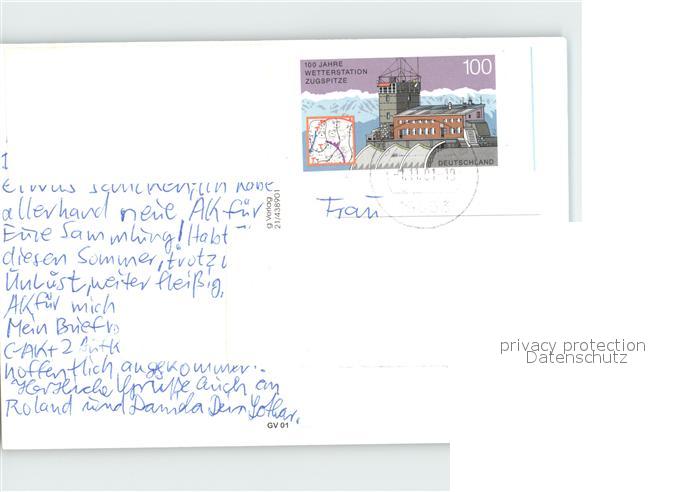 100 JAHRE
WETTERSTATION
ZUGSPITZE
100
DEUTSCHLAND
11.01-18
allerhand neue AK für
Eure Sammlung! Habt
diesen Sommer, trotz
Unlust, weiter fleißig,
AK für mich
Mein Briefm
C-AK+2
hoffentlich angekommen.
Herzliche Grüße auch an
Roland und Dein Lothar.
g Verlag
21/438901
Frau
GV 01
privacy protection
Datenschutz